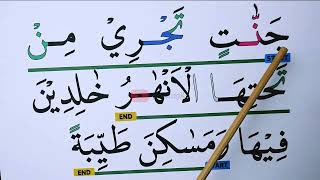 جَنّٰتٍ تَجْرِيْ مِنْ
START
تَحْتِهَا الْاَنْهٰرُ خٰلِدِيْنَ
END
فِيْهَا وَمَسٰكِنَ طَيِّبَةً
END START